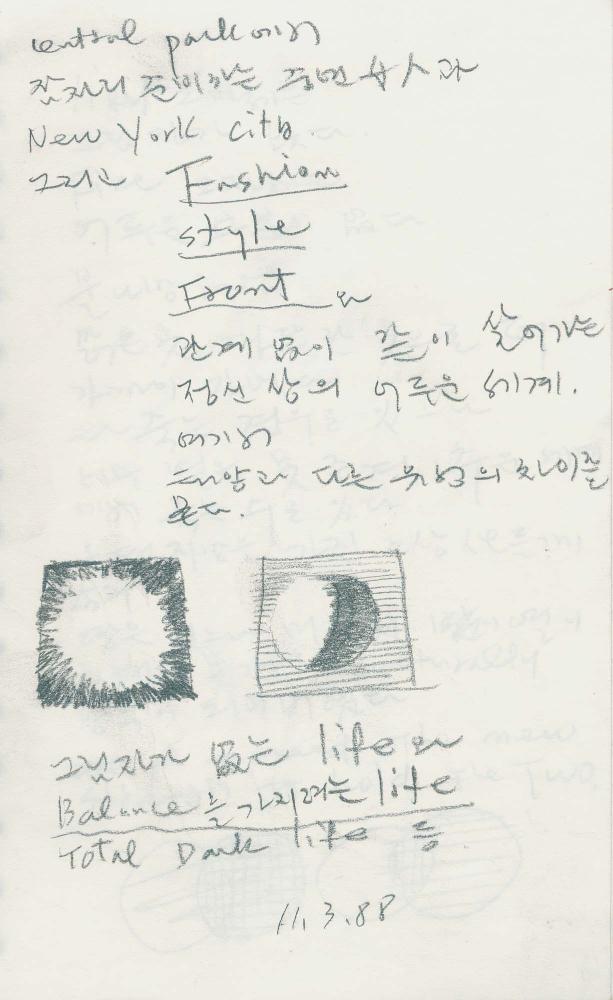 central park에서
잠자리 줏이라는 중년 女人과
New York city.
그리고 Fashion
style
Front와
관계 없이 같이 살어가는
정신 상의 어두운 세계.
여기서
태양과 다른 유성의 차이를
본다.
그림자가 없는 life와
Balance를 가지려는 life
Total Dark life 등
11.3.88